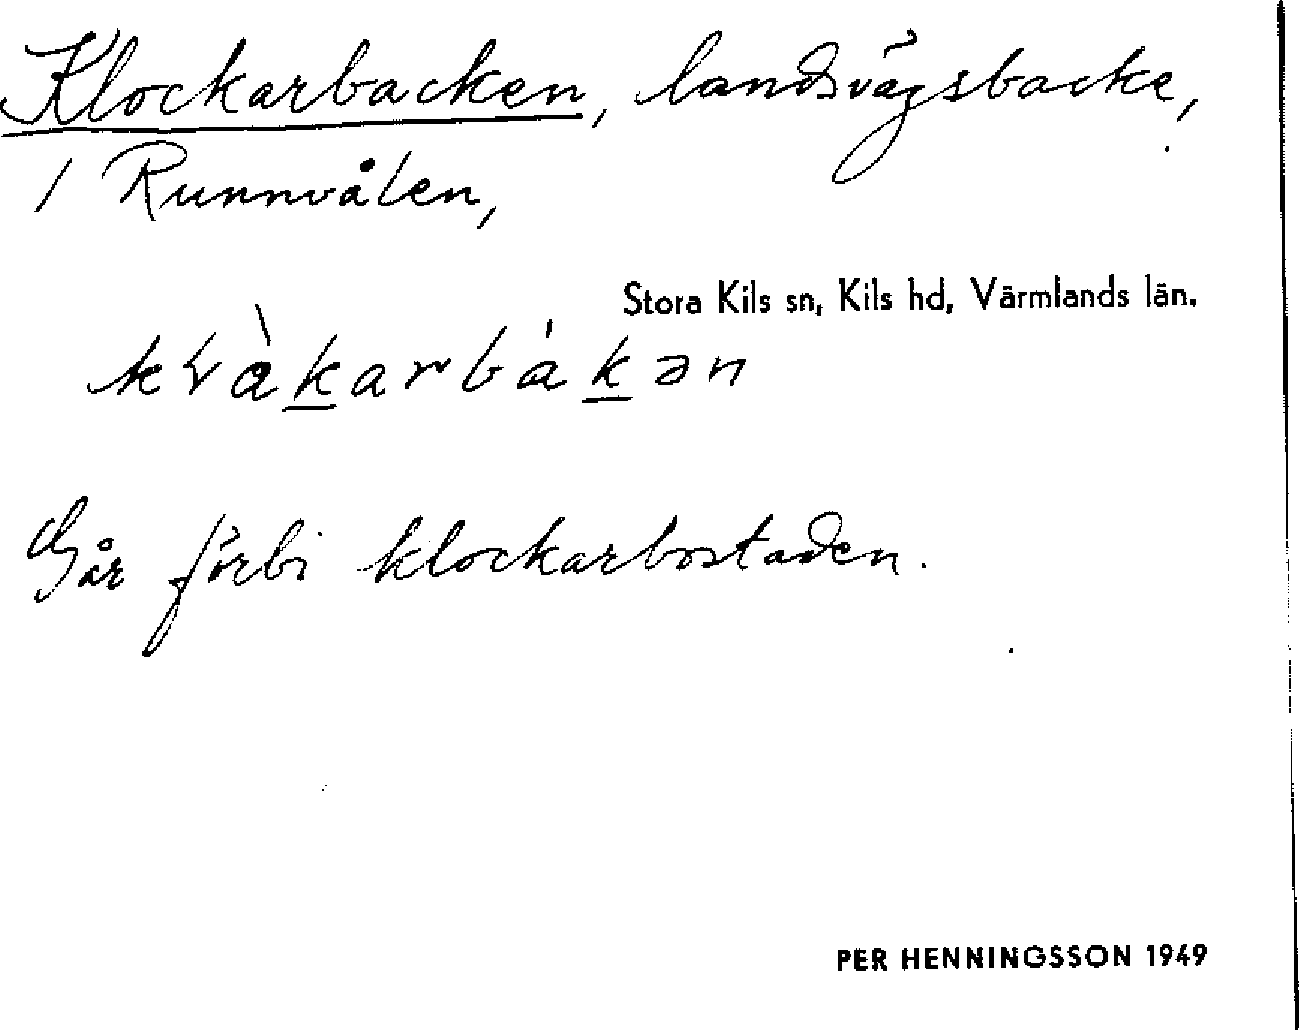 Klockarbacken, landsvägsbacke,
/ Runnvålen,
Stora Kils sn, Kils hd, Värmlands län.
Går förbi klockarbostaden.
PER HENNINGSSON 1949